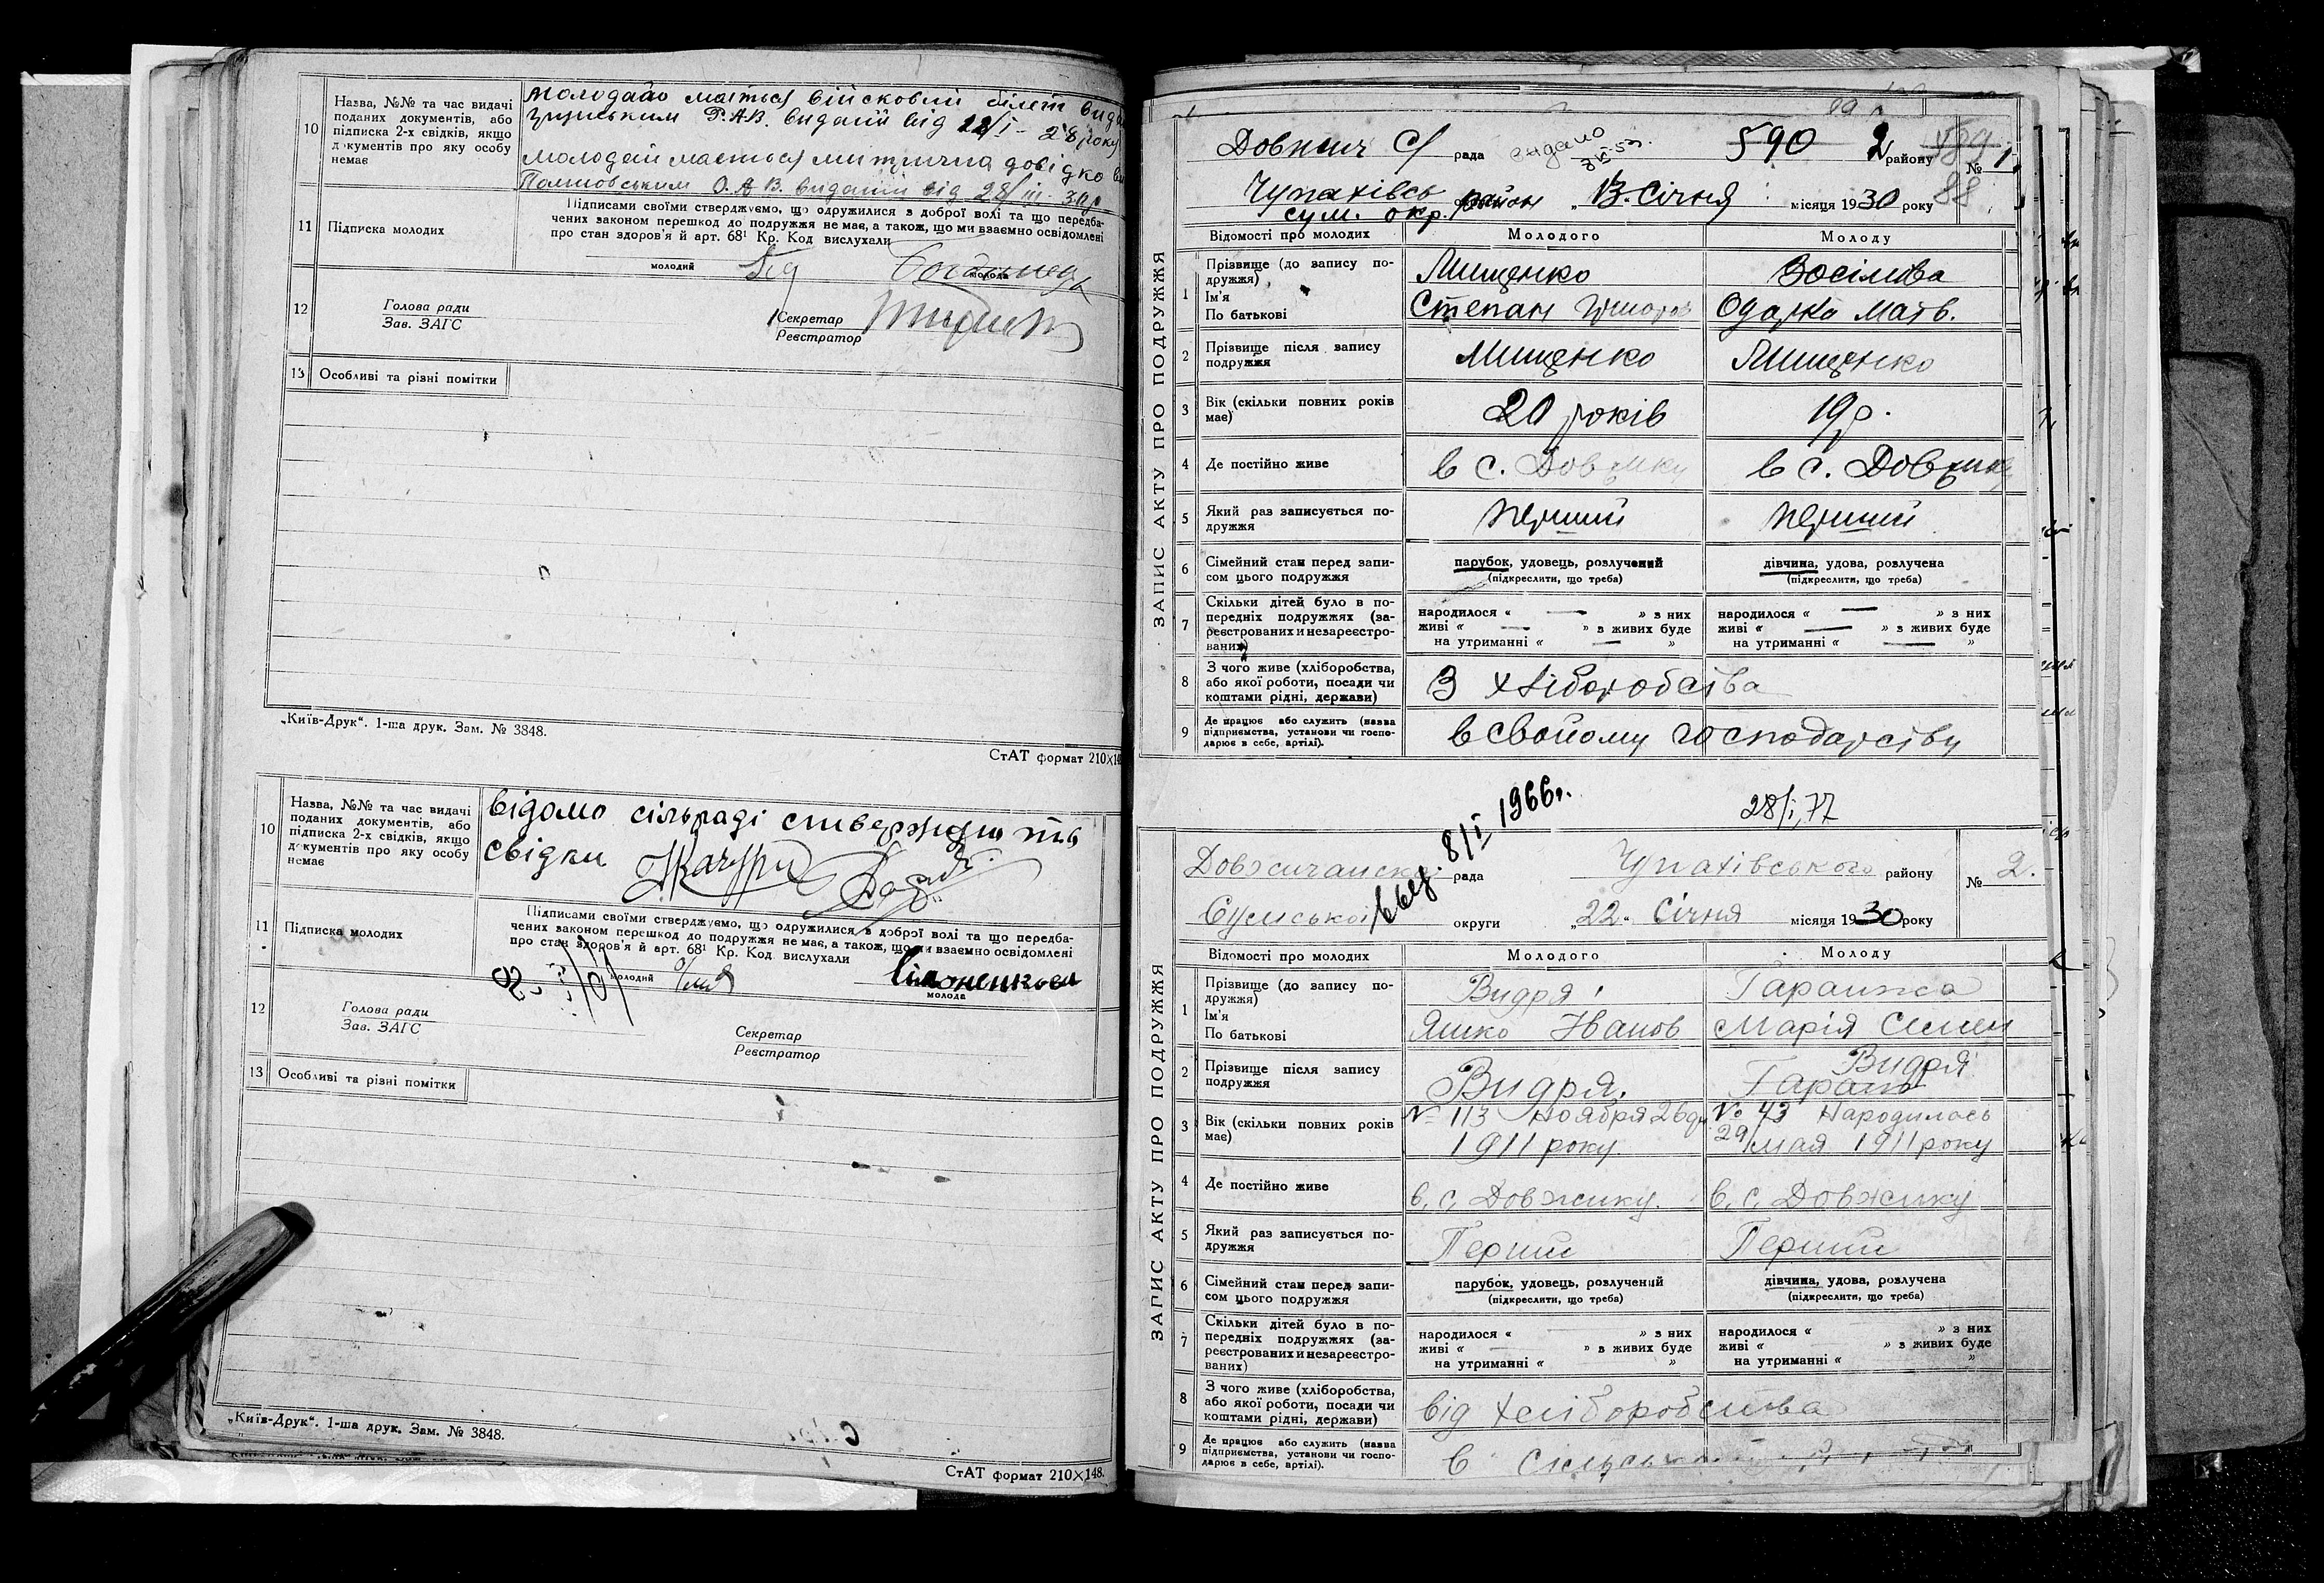 10
Назва, №№ та час видачі
поданих документів, або
підписка 2-х свідків, якщо
документів про яку особу
немає
молодого мається військовий білет
Р.А.В. видани від 22/I - 28 року
молодей мається митрична довідко
О.А.В. видании від 28/III - 30р
11 Підписка молодих
Підписами своїми стверджуємо, що одружилися з доброї волі та що передба-
чених законом перешкод до подружжя не має, а також, що ми взаємно освідомлені
про стан здоров'я й арт. 68¹ Кр. Код вислухали
молодий
молода
12
Голова ради
Зав. ЗАГС
Секретар
Реєстратор
13 Особливі та різні помітки
„Київ-Друк“. 1-ша друк. Зам. № 3848.
СтАТ формат 210×14
10
Назва, №№ та час видачі
поданих документів, або
підписка 2-х свідків, якщо
документів про яку особу
немає
відомо сільраді
свідки
11 Підписка молодих
Підписами своїми стверджуємо, що одружилися з доброї волі та що передба-
чених законом перешкод до подружжя не має, а також, що ми взаємно освідомлені
про стан здоров'я й арт. 68¹ Кр. Код вислухали
молодий
молода
12
Голова ради
Зав. ЗАГС
Секретар
Реєстратор
13 Особливі та різні помітки
„Київ-Друк“. 1-ша друк. Зам. № 3848.
СтАТ формат 210×148.
ЗАПИС АКТУ ПРО ПОДРУЖЖЯ
С/ рада 590 2 району № 1
88
Чупахівсь район „13.Січня місяця 1930 року
сум. окр.
Відомості про молодих Молодого Молоду
1
Прізвище (до запису по-
дружжя)
Ім'я
По батькові
Мищенко
Степан
Одарка Матв.
2
Прізвище після запису
подружжя
Мищенко Мищенко
3
Вік (скільки повних років
має)
20 років 19р.
4 Де постійно живе
в с. Довжику в с. Довжику
5
Який раз записується по-
дружжя
перший перший
6
Сімейний стан перед запи-
сом цього подружжя
парубок, удовець, розлучений
(підкреслити, що треба)
дівчина, удова, розлучена
(підкреслити, що треба)
7
Скільки дітей було в по-
передніх подружжях (за-
реєстрованих и незареєстро-
ваних)
народилося « — » з них
живі « — » з живих буде
на утриманні « — »
народилося « — » з них
живі « — » з живих буде
на утриманні « — »
8
З чого живе (хліборобства,
або якої роботи, посади чи
коштами рідні, держави)
З хліборобства
9
Де працює або служить (назва
підприємства, установи чи госпо-
дарює в себе, артілі).
в свойому господарству
8/I 1966г.
28/I, 77
ЗАПИС АКТУ ПРО ПОДРУЖЖЯ
рада Чупахівського району № 2.
Сумської округи „22“ Січня місяця 1930 року
Відомості про молодих Молодого Молоду
1
Прізвище (до запису по-
дружжя)
Ім'я
По батькові
Видря
Яшко Іванов
Марія Семен
2
Прізвище після запису
подружжя
Видря.
Видря
3
Вік (скільки повних років
має)
№ 113 Ноября 26дн
1911 року.
№ 43 Народилась
29 мая 1911 року
4 Де постійно живе
в. с. Довжику. в. с. Довжику
5
Який раз записується по-
дружжя
Перший Перший
6
Сімейний стан перед запи-
сом цього подружжя
парубок, удовець, розлучений
(підкреслити, що треба)
дівчина, удова, розлучена
(підкреслити, що треба)
7
Скільки дітей було в по-
передніх подружжях (за-
реєстрованих и незареєстро-
ваних)
народилося « » з них
живі « » з живих буде
на утриманні « »
народилося « » з них
живі « » з живих буде
на утриманні « »
8
З чого живе (хліборобства,
або якої роботи, посади чи
коштами рідні, держави)
від хліборобства
9
Де працює або служить (назва
підприємства, установи чи госпо-
дарює в себе, артілі).
в